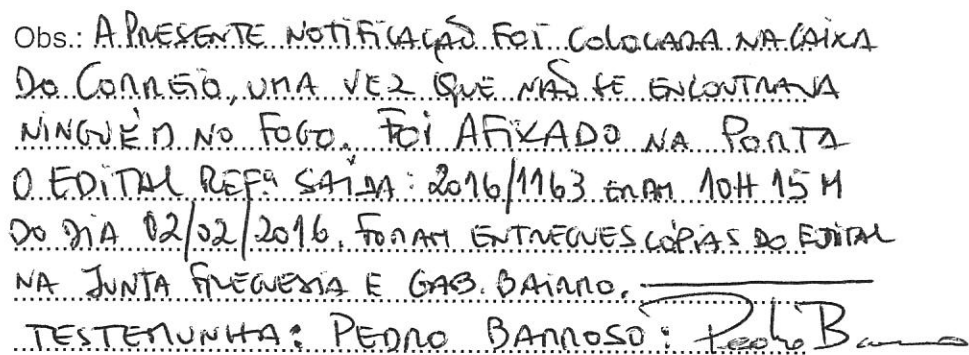 Obs.: A PRESENTE NOTIFICAÇÃO FOI COLOCADA NA CAIXA
DO CORREIO, UMA VEZ QUE NÃO SE ENCONTRAVA
NINGUÉM NO FOGO. FOI AFIXADO NA PORTA
O EDITAL REFª SAÍDA: 2016/1163 ERAM 10H 15M
DO DIA 02/02/2016. FORAM ENTREGUES CÓPIAS DO EDITAL
NA JUNTA FREGUESIA E GAB. BAIRRO.
TESTEMUNHA: PEDRO BARROSO: Pedro B